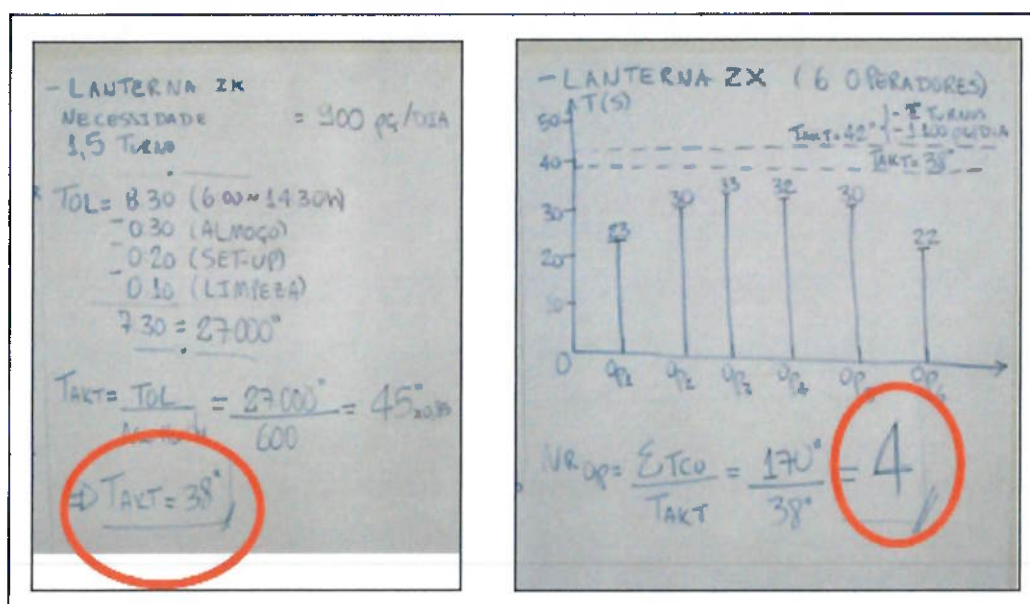 - LANTERNA ZX
NECESSIDADE = 900 pç/DIA
1,5 TURNO
TOL = 8:30 (6:00 ~ 14:30H)
- 0:30 (ALMOÇO)
- 0:20 (SET-UP)
- 0:10 (LIMPEZA)
7:30 = 27000"
TAKT = TOL = 27000" = 45" x0,85
600
=> TAKT = 38"
- LANTERNA ZX (6 OPERADORES)
T(S)
50
TAKT = 42" - TURNOS
- 1100 pç/DIA
40
TAKT = 38"
30
20
10
0
23 30 33 32 30 22
OP1 OP2 OP3 OP4 OP5 OP6
NR OP = ΣTCO = 170" = 4
TAKT 38"